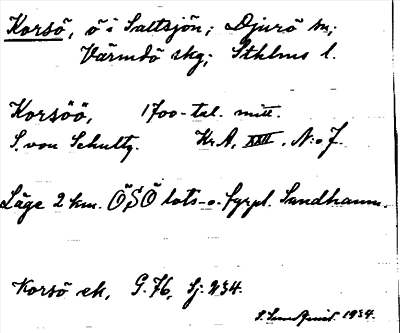 Korsö, ö i Saltsjön; Djurö sn;
Värmdö skg; Sthlms l.
Korsöö, 1700-tal. mitt.
S. von Schultz. Kr.A, XXII, N:o 7.
Läge 2 km. ÖSÖ lots- o. fyrpl. Sandhamn.
Korsö ek, G.76, Sj: 234.
1934.